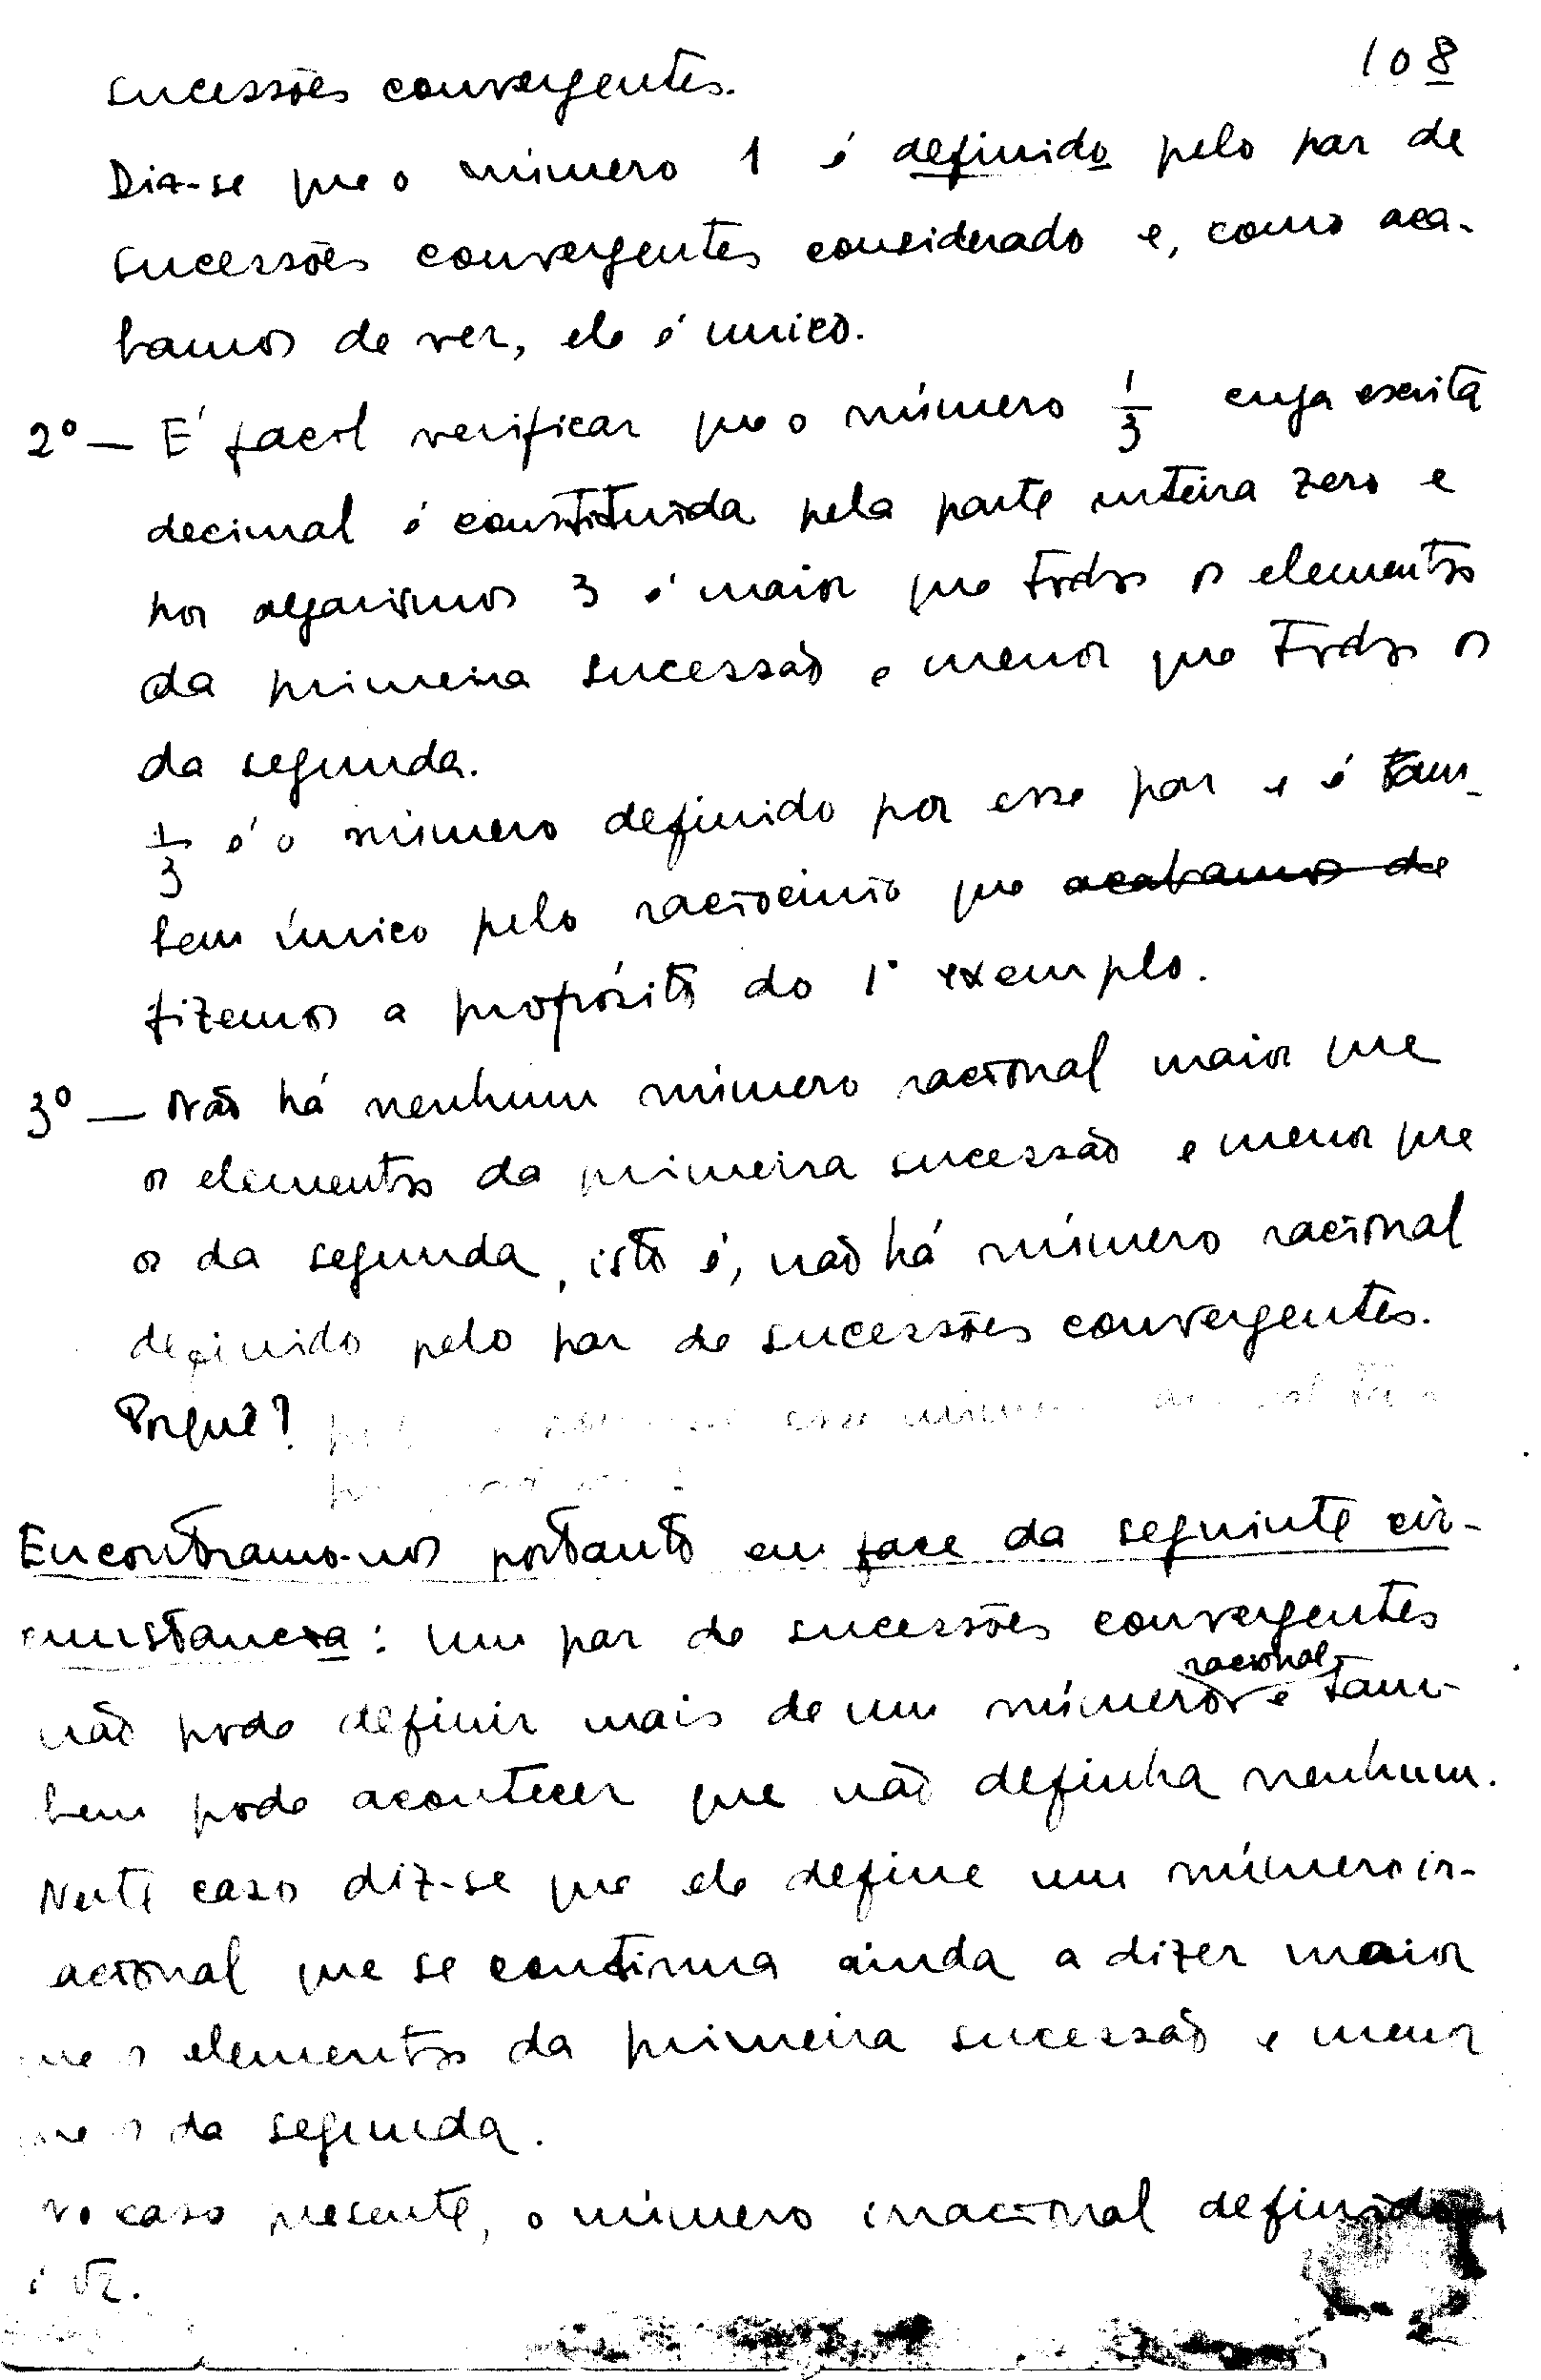 108
sucessões convergentes.
Diz-se que o número 1 é definido pelo par de
sucessões convergentes considerado e, como aca-
bamos de ver, ele é único.
2º — É facil verificar que o número 1/3 cuja escrita
decimal é constituida pela parte inteira zero e
por algarismos 3 é maior que todos os elementos
da primeira sucessão e menor que todos os
da segunda.
1/3 é o número definido por esse par e é tam-
bem único pelo raciocinio que acabamos de
fizemos a propósito do 1º exemplo.
3º — Não há nenhum número racional maior que
os elementos da primeira sucessão e menor que
os da segunda, isto é, não há número racional
definido pelo par de sucessões convergentes.
Porquê?
esse número
Encontramo-nos portanto em face da seguinte cir-
cunstancia: um par de sucessões convergentes
racional
não pode definir mais de um número e tam-
bem pode acontecer que não definha nenhum.
Neste caso diz-se que ele define um número ir-
acional que se continua ainda a dizer maior
que os elementos da primeira sucessão e menor
que os da segunda.
No caso presente, o número irracional definido
é √2.